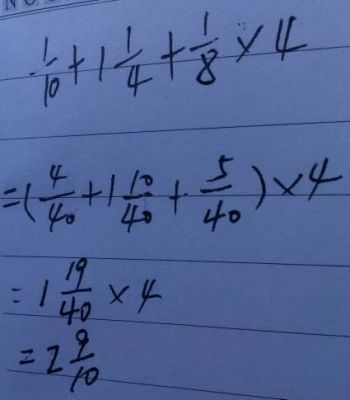 1/10 + 1 1/4 + 1/8 × 4
= (4/40 + 1 10/40 + 5/40) × 4
= 1 19/40 × 4
= 2 9/10